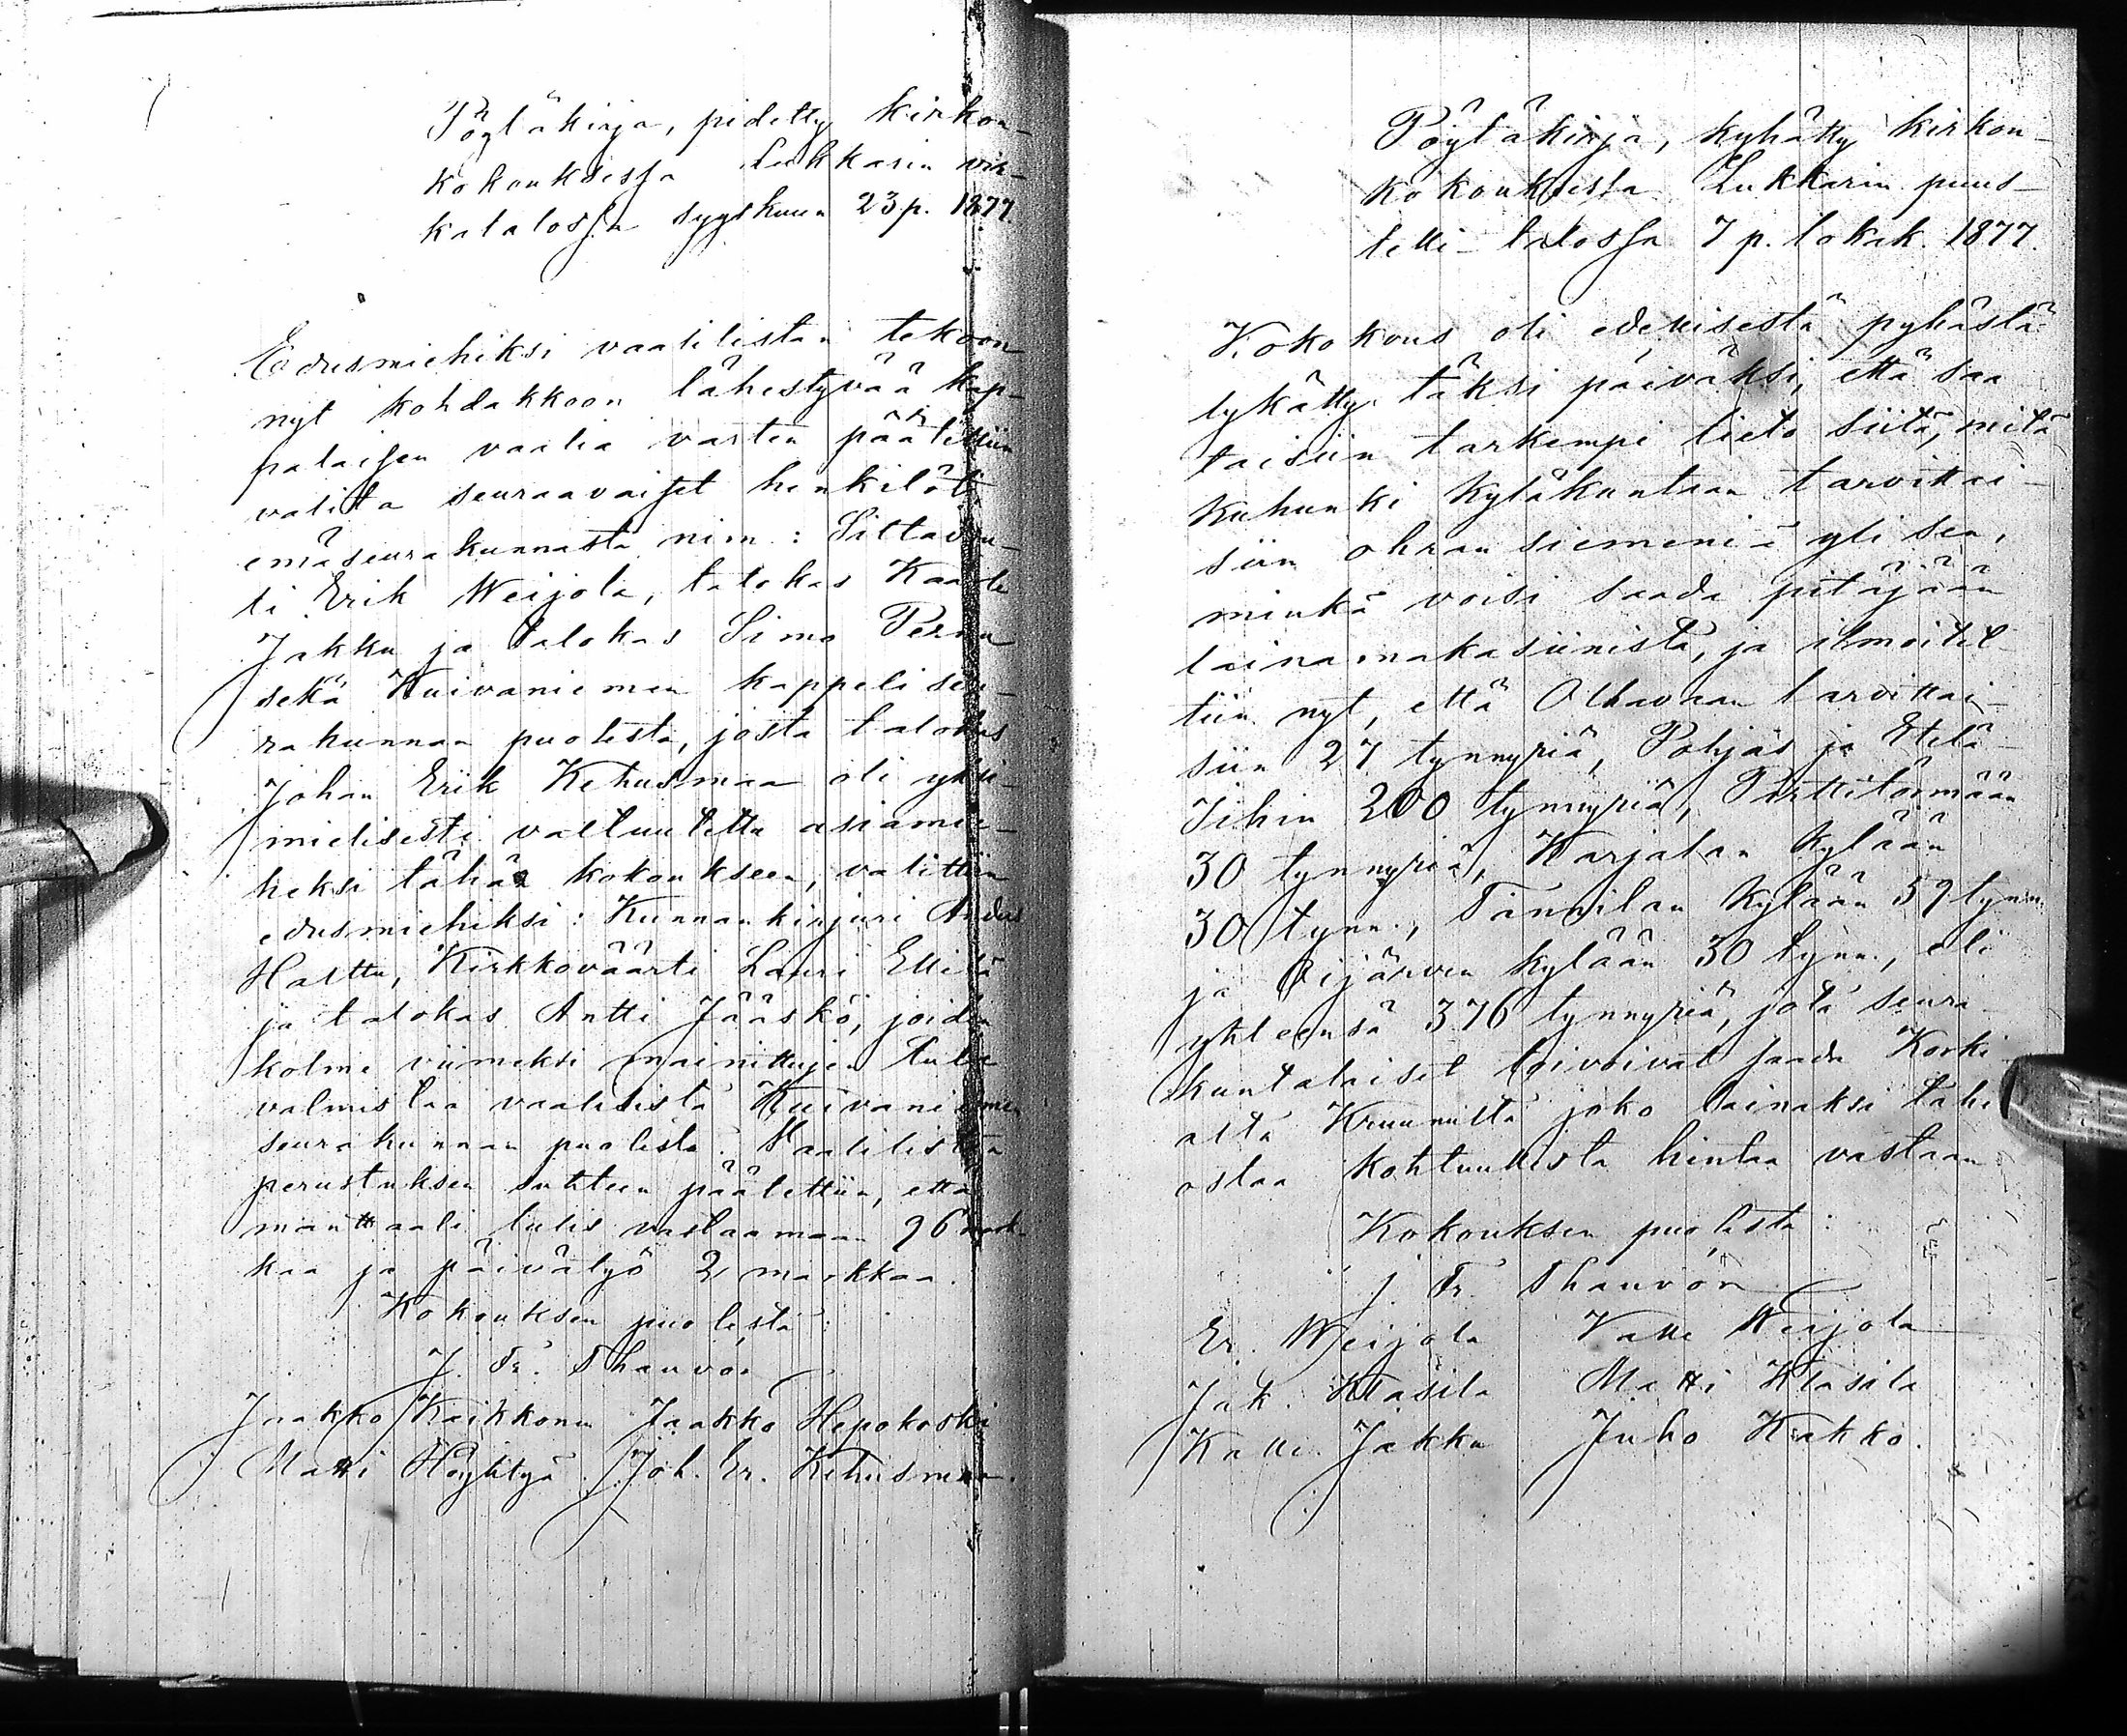 Pöytäkirja, pidetty kirkon-
kokouksessa Lukkarin vir-
katalossa syyskuun 23 p. 1877.
Edusmiehiksi vaalilistan tekoon
nyt kohdakkoon lähestyvää kap-
palaisen vaalia varten päätettiin
valita seuraavaiset henkilöt:
emäseurakunnasta nim: Siltavou-
ti Erik Weijola, talokas Kaarle
Jakku ja talokas Simo Pernu
sekä Kuivaniemen kappeliseu-
rakunnan puolesta, josta talokas
Johan Erik Kehusmaa oli yksi-
mielisesti valtuutettu asiamie-
heksi tähän kokoukseen, valittiin
edusmiehiksi: Kunnankirjuri Andus
Hastu, Kirkkoväärti Lauri Ellilä
ja talokas Antti Jääskö, joiden
kolme viimeksi mainittujen tulee
valmistaa vaalilista Kuivaniemen
seurakunnan puolesta. Vaalilistan
perustuksen suhteen päätettiin, että
manttaali tulis vastaamaan 96 mark-
kaa ja päivätyö 2 markkaa.
Kokouksen puolesta:
J. Fr. Thauvón
Jaakko Kaikkonen Jaakko Hepokoski
Matti Höyhtyä. Joh. Er. Kehusmaa.
Pöytäkirja, kyhätty kirkon-
kokouksesta Lukkarin puus-
telli-talossa 7 p. lokak. 1877.
Kokokous oli edellisestä pyhästä
lykätty täksi päiväksi, että saa
taisiin tarkempi tieto siitä, mitä
kuhunki kyläkuntaan tarvittai-
siin ohran siemeniä yli sen,
minkä voisi saada pitäjään
lainamakasiinista, ja ilmoitet-
tiin nyt, että Olhavaan tarvittai-
siin 27 tynnyriä, Pohjas ja Etelä-
Iihin 200 tynnyriä, Pirttitörmään
30 tynnyriä, Karjalan kylään
30 tynn., Tannilan kylään 59 tynn.
ja Oijärven kylään 30 tynn., eli
yhteensä 376 tynnyriä, jota seura-
kuntalaiset toivoivat saada Korki-
alta Kruunulta joko lainaksi tahi
ostaa kohtuullista hintaa vastaan
Kokouksen puolesta:
J. Fr. Thauvón
Er. Weijola Kalle Weijola
Jak. Klasila Matti Klasila
Kalle Jakku Juho Kakko.